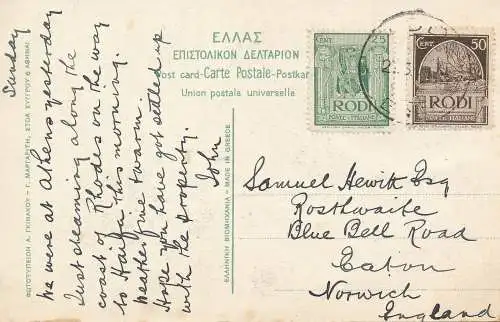 ΕΛΛΑΣ
ΕΠΙΣΤΟΛΙΚΟΝ ΔΕΛΤΑΡΙΟΝ
Post card-Carte Postale-Postkar
Union postale universelle
CENT. 25
RODI
POSTE ITALIANE
CENT. 50
RODI
POSTE ITALIANE
Sunday
We were at Athens yesterday
Just steaming along the
coast of Rhodes on the way
to Haifa this morning.
Weather fine & warm.
Hope you have got settled up
with the property.
John
Samuel Hewitt Esq
Rosthwaite
Blue Bell Road
Eaton
Norwich
England
ΦΩΤΟΤΥΠΕΙΟΝ Α. ΓΚΙΝΑΚΟΥ - Γ. ΜΑΡΓΑΡΙΤΗ, ΣΤΟΑ ΣΥΓΓΡΟΥ 6 ΑΘΗΝΑΙ
ΕΛΛΗΝΙΚΗ ΒΙΟΜΗΧΑΝΙΑ - MADE IN GREECE